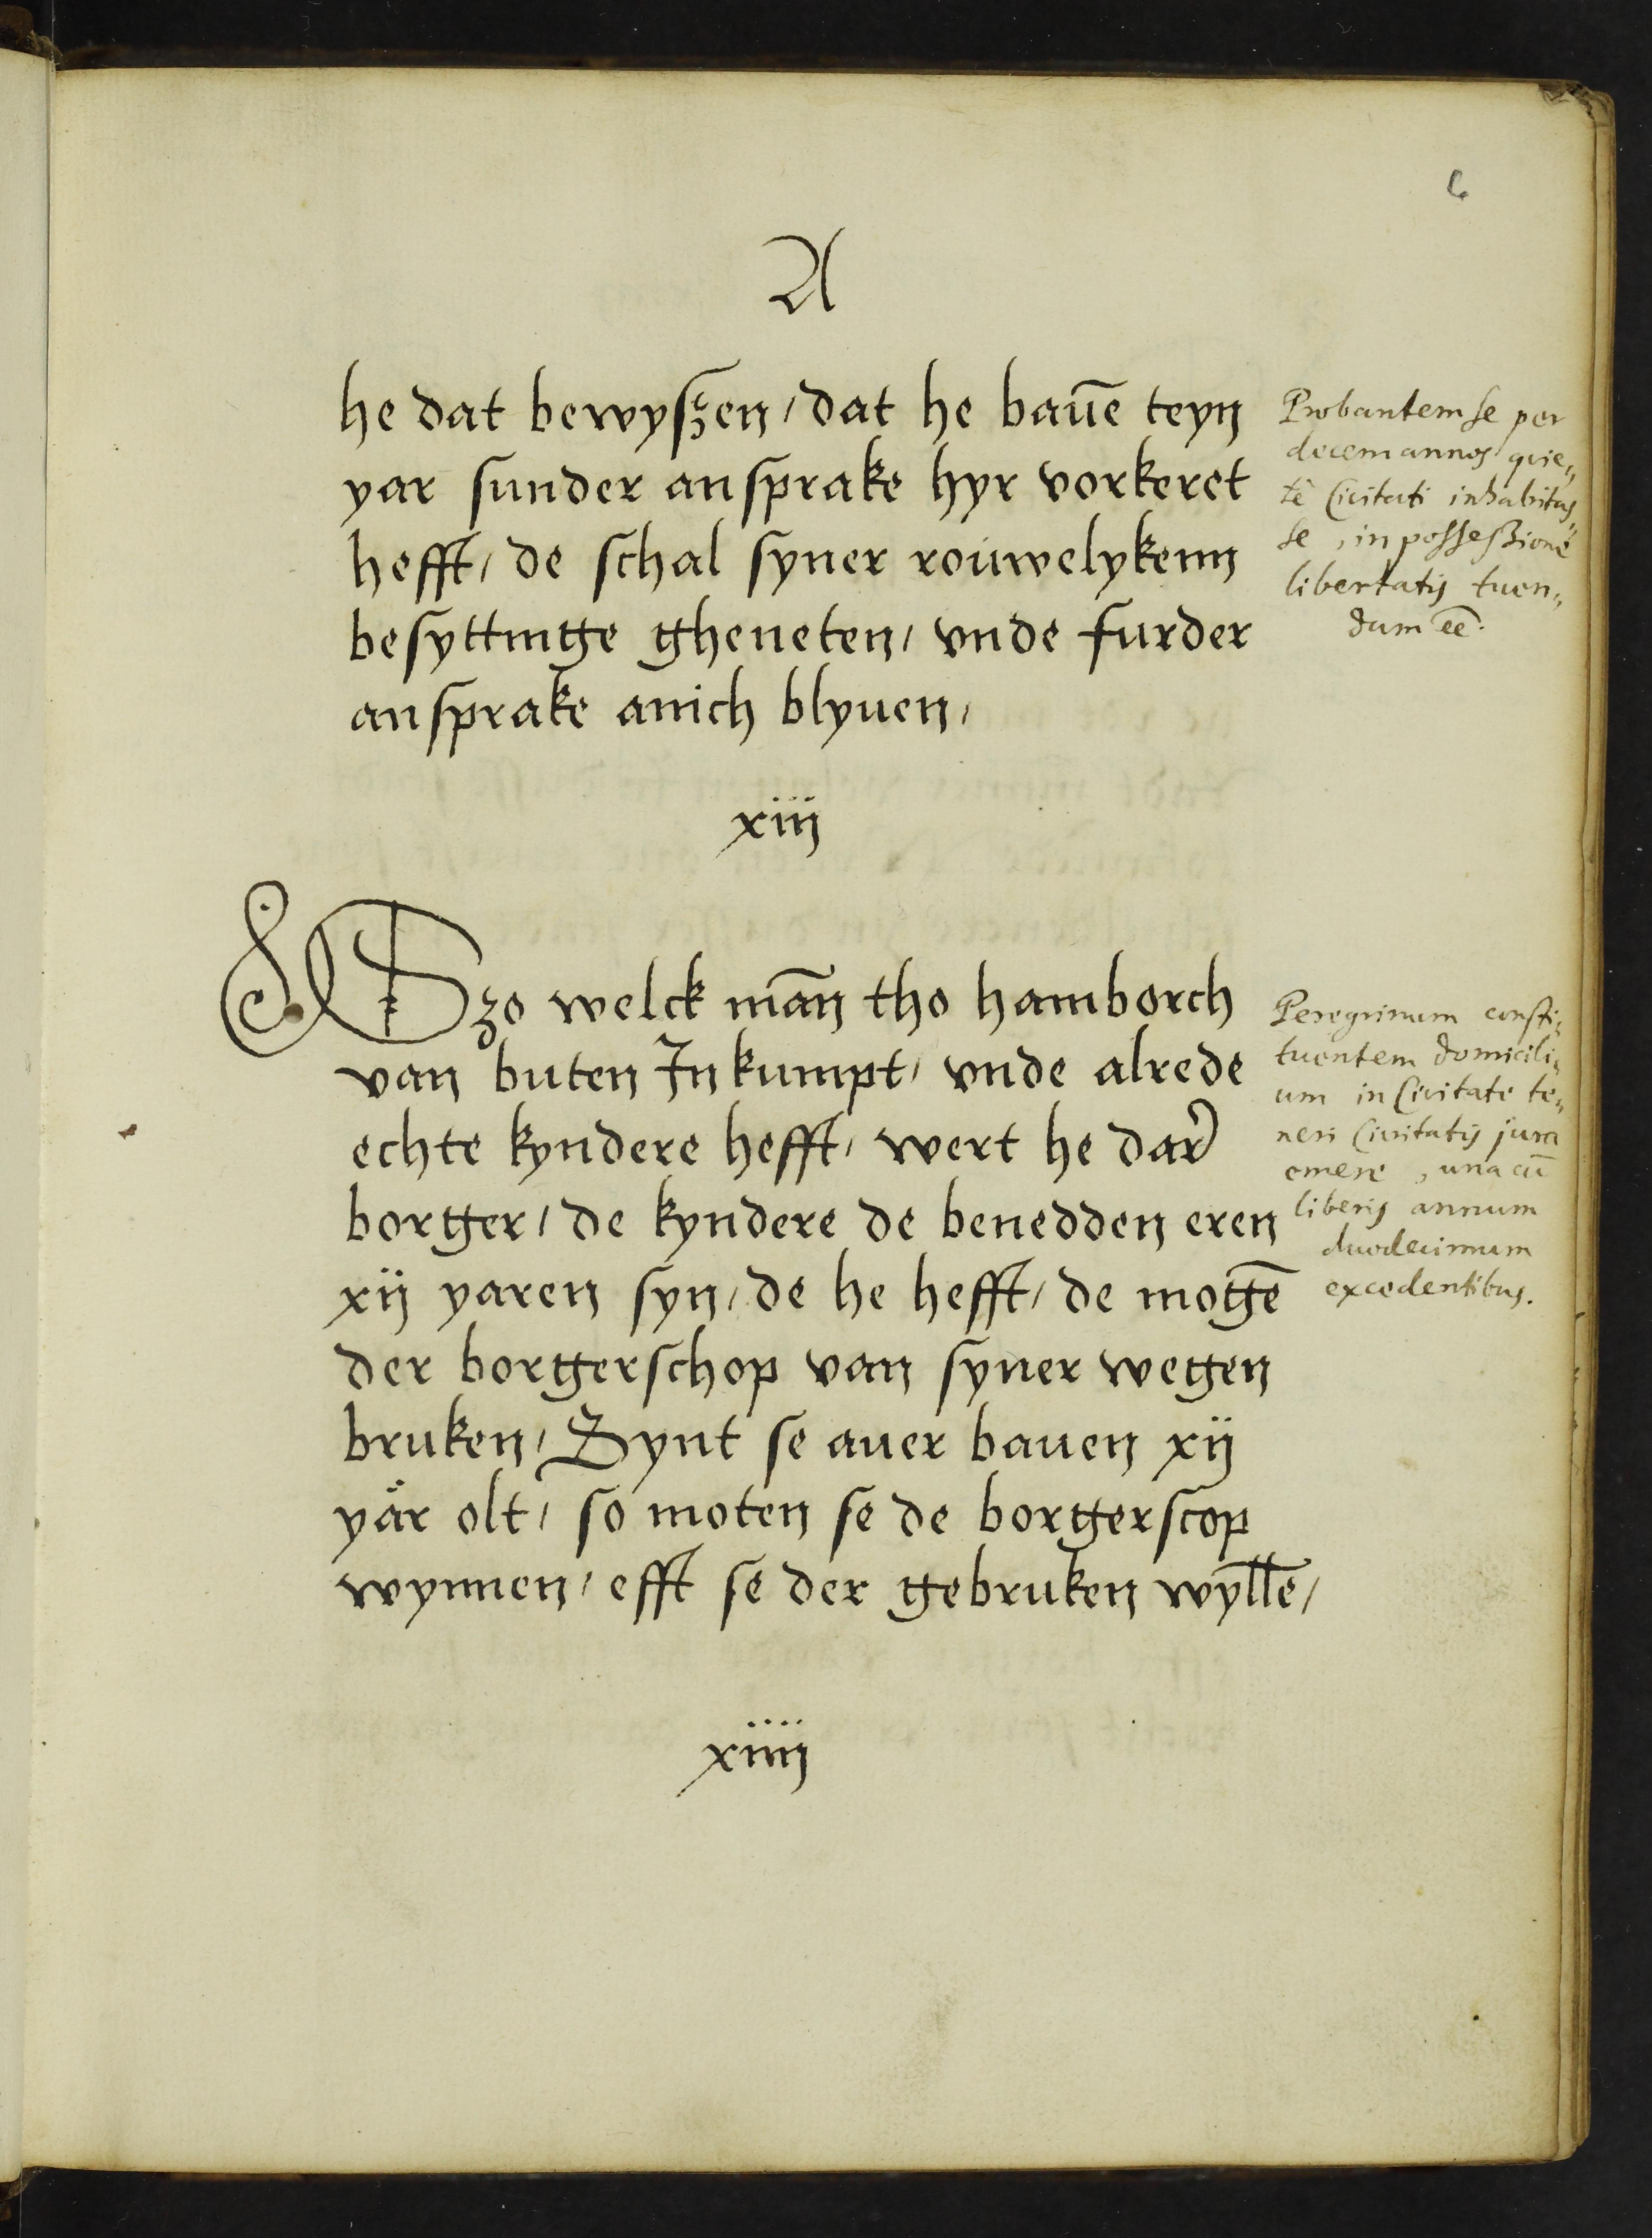 6
A
he dat bewyszen / dat he bauē teyn
yar sunder ansprake hyr vorkeret
hefft / de schal syner rouwelykenn
besyttinge gheneten / vnde furder
ansprake anich blyuen /
Probantem se per
decem annos quie„
tè Civitati inhabitas„
se, in posseßionē
libertatis tuen„
dum eē.
xiij
Szo welck mān tho hamborch
van buten Jnkumpt / vnde alrede
echte kyndere hefft / wert he dar
borger / de kyndere de benedden eren
xij yaren syn / de he hefft / de mogē
der borgerschop van syner wegen
bruken / Synt se auer bauen xij
yar olt / so moten se de borgerscop
wynnen / efft se der gebruken wyllē /
Peregrinum consti„
tuentem domicili„
um in Civitate te„
neri Civitatis jura
emere, una cū
liberis annum
duodecimum
excedentibus.
xiiij